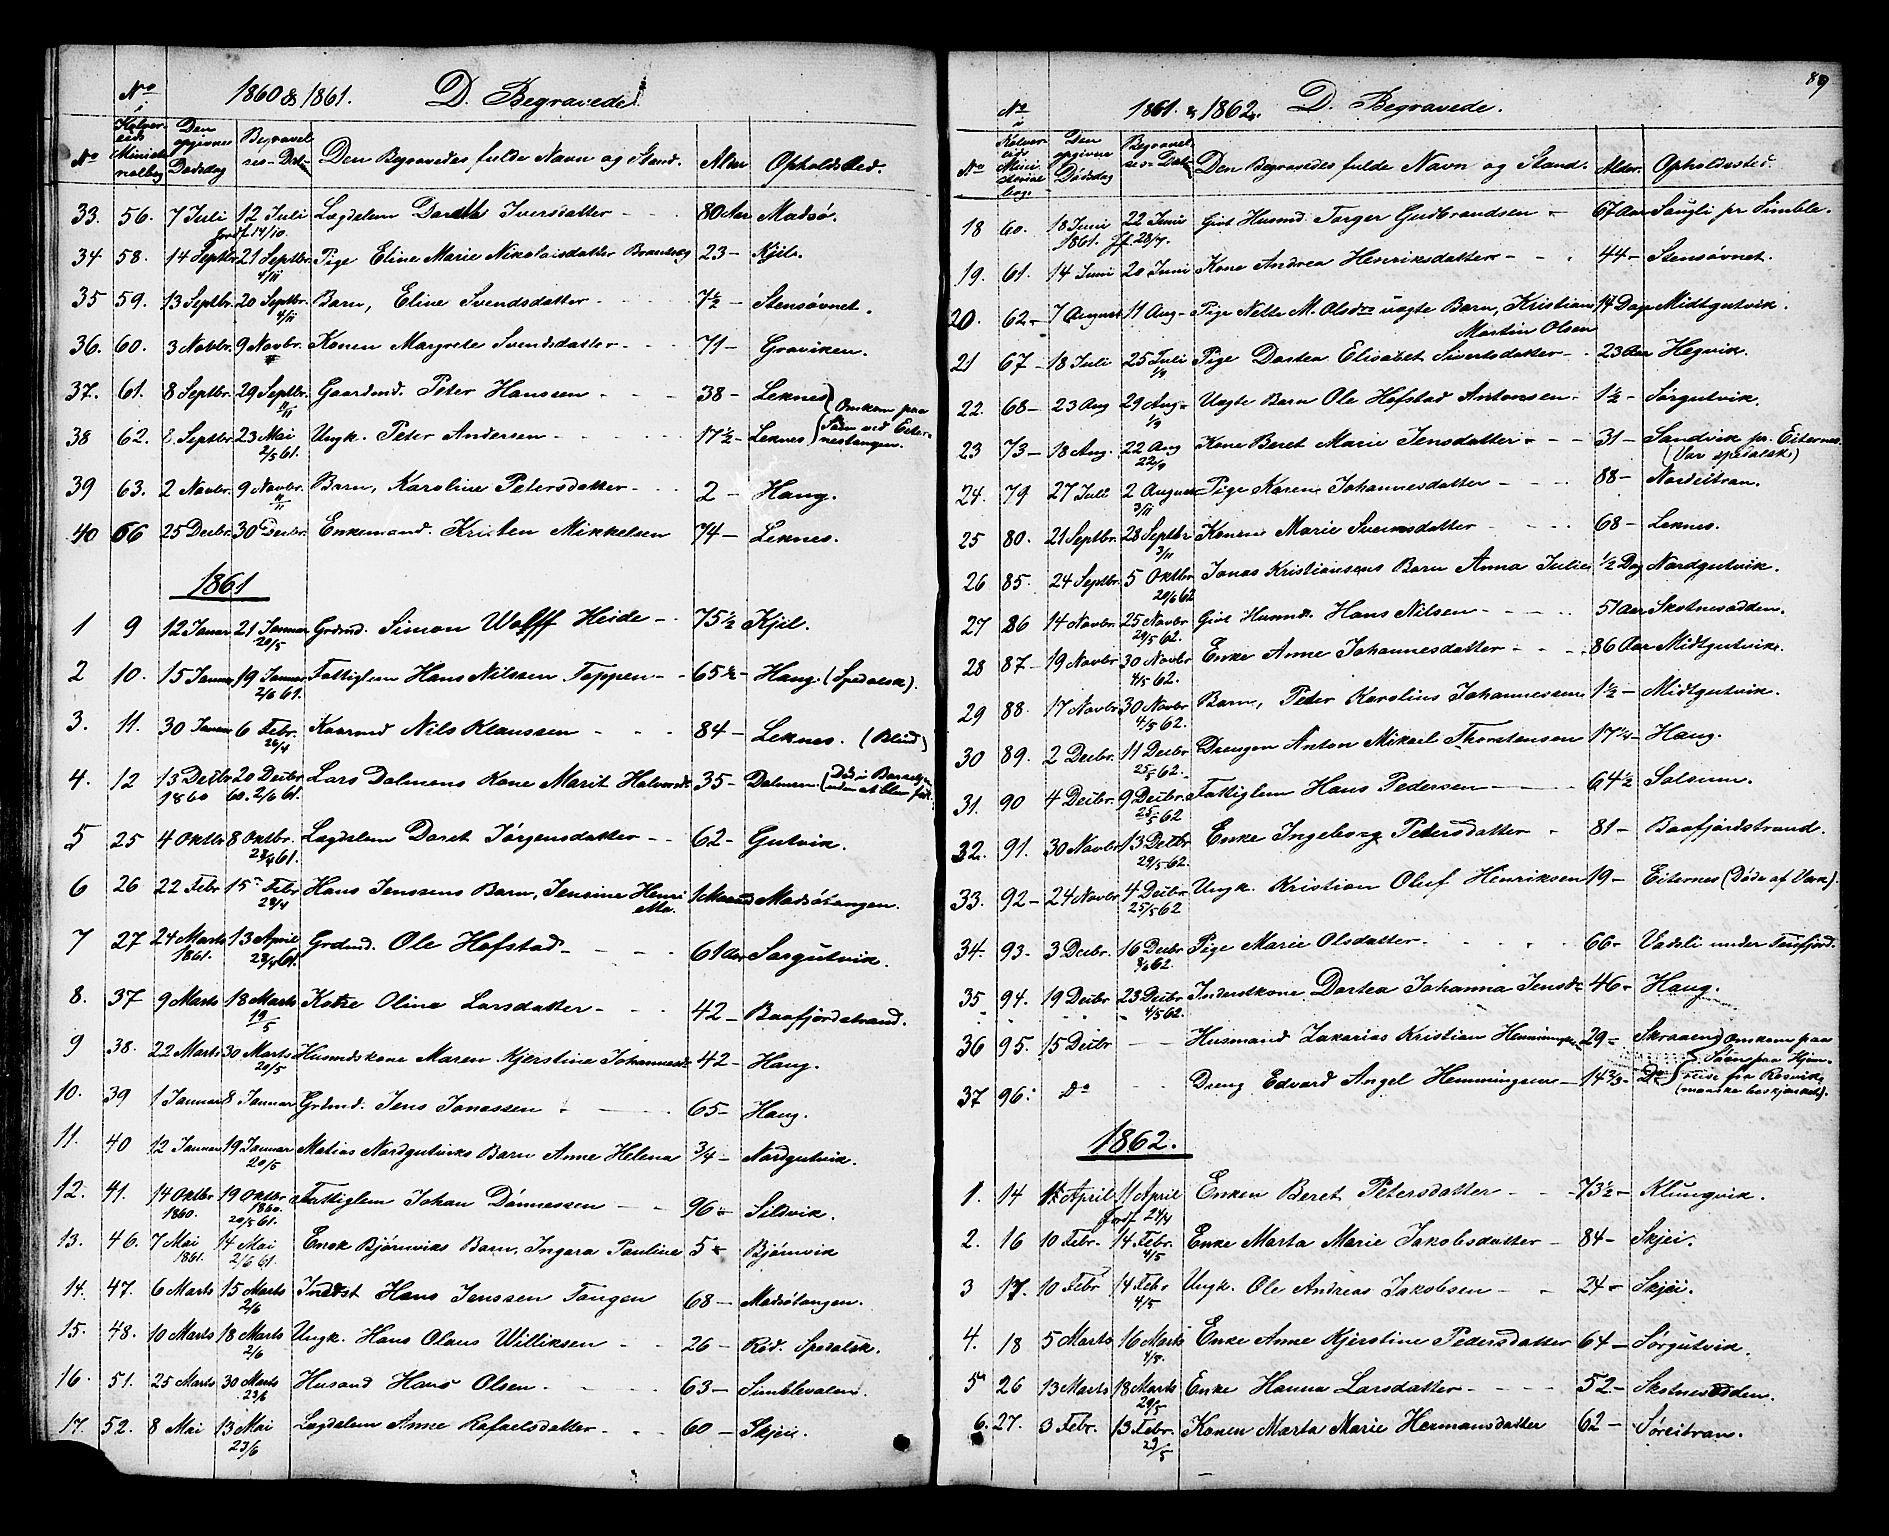 1860 & 1861. D. Begravede.
No
No i Kolvereids Ministerialbog Den opgivne Dødsdag Begravelses-Dato Den Begravedes fulde Navn og Stand. Alder Opholdssted.
33. 56. 7 Juli 12 Juli Lægdslem Dorethe Iversdatter - - 80 Aar Madsø.
Jordf. 14/10.
34 58. 14 Septbr. 21 Septbr. Pige Eline Marie Nikolaisdatter 23 - Kjil.
4/11
35 59. 13 Septbr. 20 Septbr. Barn, Eline Svendsdatter - - - 7½ - Stensøvnet.
4/11
36. 60. 3 Novbr. 9 Novbr. Konen Margrete Svendsdatter - - 71 - Graviken.
37. 61. 8 Septbr. 29 Septbr. Gaardmd. Peter Hanssen - - - 38 - Leknes } Omkom paa
11/11
38 62. 8 Septbr. 23 Mai Ungk. Peter Andersen - - - 17½ - Leknes } Søen ved Eiter-
2/5 61. nestangen.
39 63. 2 Novbr. 9 Novbr. Barn, Karoline Petersdatter - - 2 - Haug.
11/11
40 66 25 Decbr. 30 Decbr. Enkemand. Kristen Mikkelsen 74 - Leknes.
1861
1 9 12 Januar 21 Januar Grdmd. Simon Wolff Heide - 75½ Kjil.
20/5
2 10. 15 Januar 19 Januar Fattiglem Hans Nilssen Toppen - - 65½ - Haug. (Spedalsk).
2/6 61.
3. 11. 30 Januar 6 Febr. Kaarmd Nils Klaussen - - - 84 - Leknes. (Blind)
26/4
4. 12 13 Decbr 20 Decbr. Lars Dalmoens Kone Marit Halvorsdr 35 - Dalmoen. (Død i Barselseng
1860 60. 2/6 61. uden at blev født.
5 25 4 Oktbr 8 Oktbr. Lægdslem Doret Jørgensdatter - - 62 - Gutvik.
28/4 61.
6 26 22 Febr 15 Febr. Hans Jenssens Barn, Jensine Henri- 1 Maaned Madsøtangen.
28/4 ette.
7 27 24 Marts 13 April Grdmd. Ole Hofstad - - - - 61 Aar Sørgutvik.
1861. 28/4 61.
8. 37 9 Marts 18 Marts Kone Olina Larsdatter - - - 42 - Baafjordstrand.
19/5
9 38. 22 Marts 30 Marts Husmdskone Maren Kjerstine Johannesdr 42 - Haug.
20/5
10. 39 1 Januar 8 Januar Grdmd. Jens Jonassen - - - 65 - Haug.
11. 40 12 Januar 19 Januar Matias Nordgutviks Barn Anne Helena ¾ - Nordgutvik.
20/5
12. 41. 14 Oktbr 19 Oktbr Fattiglem Johan Dønnessen - - 96 - Sildvik.
1860. 1860.
20/5 61.
13. 46. 7 Mai 14 Mai Enok Bjørnviks Barn, Ingara Pauline 5 - Bjørnvik
1861. 2/6 61.
14. 47. 6 Marts 15 Marts Inderst Hans Jenssen Tangen 68 - Madsøtangen.
2/6
15. 48. 10 Marts 18 Marts Ungk. Hans Olaus Williksen - - 26 - Rød. Spedalsk.
2/6
16. 51. 25 Marts 30 Marts Husmd Hans Olsen. - - - 63 - Simblevalen.
23/6
17. 52. 8 Mai 13 Mai Lægdslem Anne Rafaelsdatter. - - 60 - Skjei.
23/6
89
1861. & 1862. D. Begravede.
No
No i Kolvereids Ministerialbog. Den opgivne Dødsdag Begravelses-Dato Den Begravedes fulde Navn og Stand. Alder. Opholdssted.
18 60. 18 Juni 22 Juni Givt Husmd. Torger Gudbrandsen - 67 Aar Saugli pr Simble.
1861. Jf. 28/7.
19. 61. 14 Juni 20 Juni Kone Andrea Henriksdatter - - - 44 - Stensøvnet.
20. 62 - 7 August 11 Aug - Pige Nelle M. Olsdrs uægte Barn, Kristian 14 Dage Midtgutvik.
Martin Olsen
21 67 - 18 Juli 25 Juli Pige Dortea Elisabet Sivertsdatter - - 23 Aar Hegvik.
1/9
22. 68 - 23 Aug 29 Aug - Uægte Barn Ole Hofstad Antonsen - 1½ - Sørgutvik.
1/9
23 73 - 18 Aug. 22 Aug Kone Beret Marie Jensdatter - - - 31 - Sandvik pr. Eiternes.
22/9 (Var spedalsk.)
24. 79 27 Juli 2 August Pige Karen Johannesdatter - - - 88 - Nordeitran.
3/11
25 80. 21 Septbr. 28 Septbr Konen Marie Svensdatter - - - 68 - Leknes.
3/11
26 85. 24 Septbr 5 Oktbr Jonas Kristiansens Barn Anna Julie ½ Dag Nordgutvik.
20/6 62
27 86 14 Novbr. 25 Novbr Givt Husmd. Hans Nilsen - - - 51 Aar Skotnesodden.
29/5 62.
28 87 - 19 Novbr 30 Novbr Enke Anne Johannesdatter - - - 86 Aar Midtgutvik.
4/5 62.
29 88. 17 Novbr 30 Novbr Barn, Peter Karolius Johannessen 1½ - Midtgutvik.
4/5 62.
30 89. 2 Decbr. 11 Decbr Drengen Anton Mikael Thorstensen 17¼ - Haug.
25/5 62.
31. 90 4 Decbr. 9 Decbr. Fattiglem Hans Pedersen - - - 64½ Salsnæs.
25/5 62
32. 91. 30 Novbr 13 Decbr Enke Ingeborg Petersdatter - 81 - Baafjordstrand.
29/5 62.
33. 92 - 24 Novbr 4 Decbr Ungk. Kristian Oluf Henriksen 19 - Eiternes (Døde af Værk).
25/5 62
34. 93 - 3 Decbr. 16 Decbr Pige Marie Olsdatter. - - - 66 - Vadeli under Tennfjord.
8/6 62.
35 94. 19 Decbr 23 Decbr Inderstkone Dortea Johanna Jensdr 46 - Haug.
4/5 62.
36 95. 15 Decbr - - Husmand Zakarias Kristian Hemmingsen 29 - Skraaen } Omkom paa
Søen paa Hjem-
37 96. Do - - Dreng Edvard Angel Hemmingsen - 14⅔ - Do } reise fra Rørvik,
(maaske beskjænket).
1862.
1. 14 1 April 11 April Enken Beret Petersdatter - - - 73½ - Klungvik.
Jordf. 24/4
2. 16 10 Febr. 14 Febr. Enke Marta Marie Jakobsdatter - 84 - Skjei.
4/5
3 17. 10 Febr 14 Febr Ungk. Ole Andreas Jakobsen - - 24 - Skjei.
4/5
4. 18 5 Marts 16 Marts Enke Anne Kjerstine Pedersdatter 64 - Sørgutvik.
4/5.
5 26 13 Marts 18 Marts Enke Hanna Larsdatter - - - 52 - Skotnesodden.
29/5
6. 27. 3 Febr. 13 Febr. Konen Marta Marie Hermansdatter 62 - Søreitran.
29/5